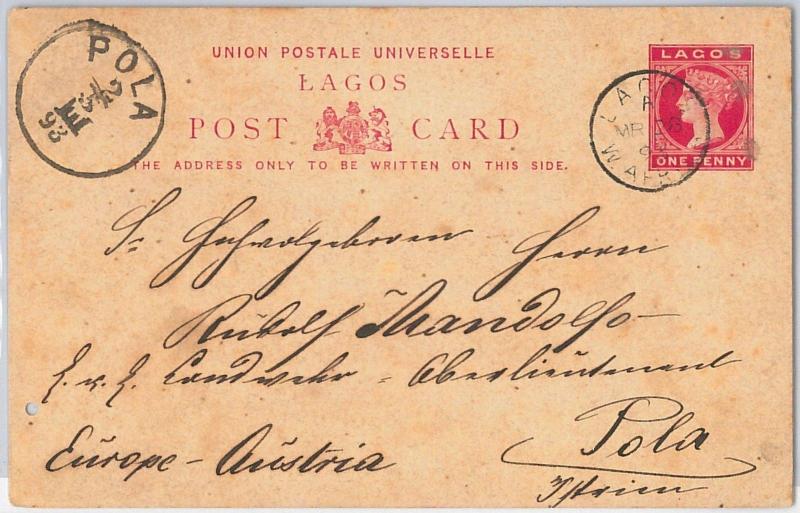 POLA
93
UNION POSTALE UNIVERSELLE
LAGOS
POST CARD
THE ADDRESS ONLY TO BE WRITTEN ON THIS SIDE.
LAGOS
A
MR
W AFR
LAGOS
ONE PENNY
Sr Hochwolgeboren Herrn
Rudolf Mandolfo
k. u. k. Landwehr - Oberlieutenant
Pola
Europe - Austria
Istrien